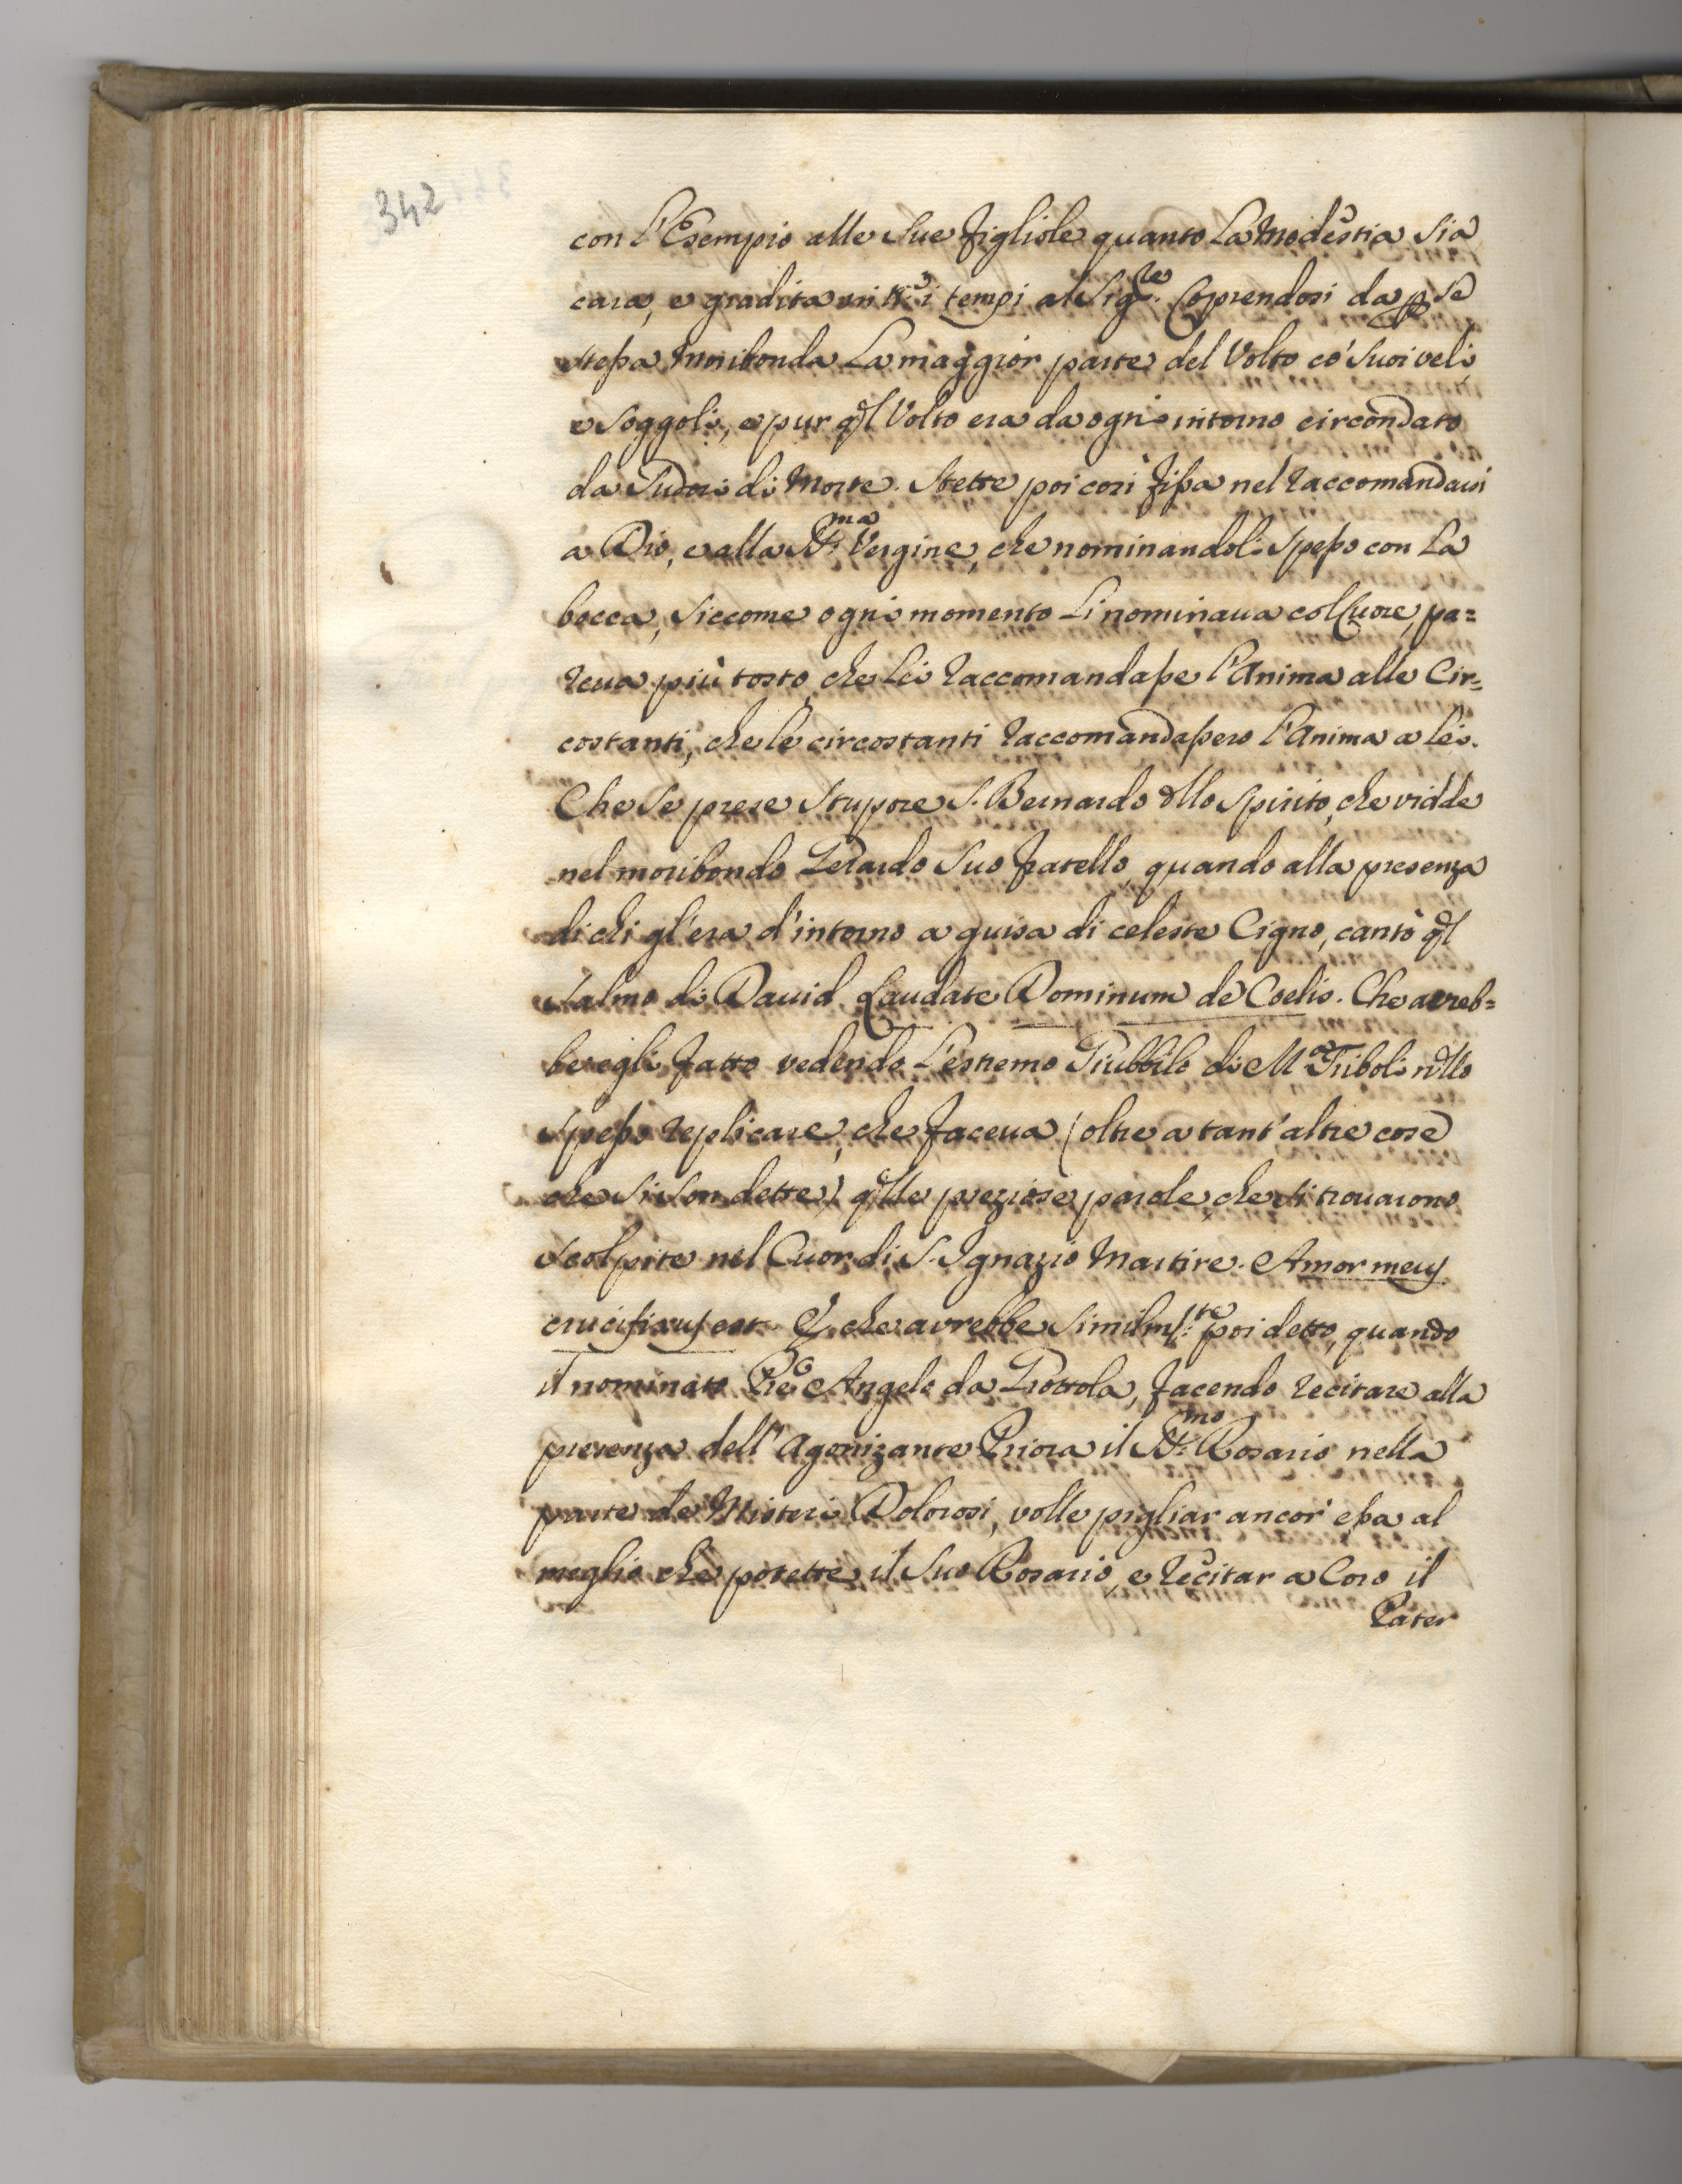 342
con l'Esempio alle Sue figliole quanto La Modestia Sia
cara, e gradita in tt.i i tempi al Sig.re Coprendosi da p se
stessa Moribonda La maggior parte del Volto co' Suoi veli
e Soggoli, e pur ql Volto era da ogn'intorno circondato
da Sudori di Morte. Stette poi così fissa nel raccomandarsi
a Dio, e alla SS.ma Vergine, che nominandoli Spesso con La
bocca, Siccome ogni momento Li nominaua col Cuore, pa=
reua più tosto, che Lei raccomandasse l'Anima alle Cir=
costanti, che le circostanti raccomandassero l'Anima a Lei.
Che Se prese Stupore S. Bernardo dllo Spirito, che vidde
nel moribondo Gerardo Suo fratello, quando alla presenza
di chi gl'era d'intorno a guisa di celeste Cigno, cantò ql
Salmo di Dauid Laudate Dominum de Coelis. Che avreb=
be egli fatto vedendo L'estremo Giubbilo di M.a Triboli nllo
Spesso replicare, che faceua (oltre a tant'altre cose
che Si Son dette) qlle preziose parole, che Si trouarono
Scolpite nel Cuor di S. Ignazio Martire. Amor meus
crucifixus est. E che avrebbe Similm.te poi detto, quando
il nominato Pre Angelo da Grottola, facendo recitare alla
presenza dell'Agonizante Priora il SS.mo Rosario nella
parte de Misteri Dolorosi, volle pigliar ancor essa al
meglio che potette, il Suo Rosario, e recitar a Coro il
Pater